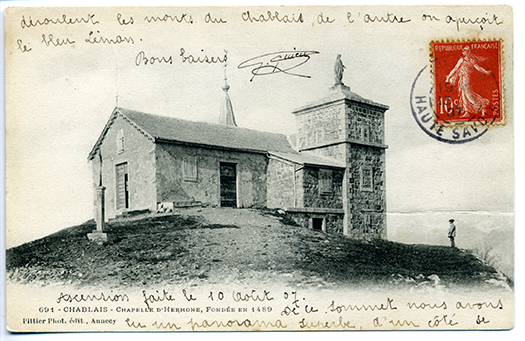 déroulent les monts du Chablais, de l'autre on aperçoit
le bleu Léman.
Bons baisers
REPUBLIQUE FRANÇAISE
10c
POSTES
HAUTE SAVOIE
Ascension faite le 10 Août 07. De ce sommet nous avons
691 - CHABLAIS - CHAPELLE D'HERMONE, FONDÉE EN 1489
Pittier Phot. édit., Annecy
eu un panorama superbe, d'un côté se